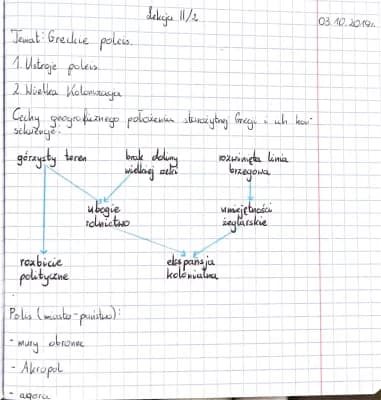 Lekcja 11/2
03.10.2019r.
Temat: Greckie poleis.
1. Ustroje poleis
2. Wielka Kolonizacja
Cechy geograficznego położenia starożytnej Grecji i ich kon
sekwencje:
górzysty teren
brak doliny
wielkiej rzeki
rozwinięta linia
brzegowa
ubogie
rolnictwo
umiejętności
żeglarskie
rozbicie
polityczne
ekspansja
kolonialna
Polis (miasto-państwo):
- mury obronne
- Akropol
- agora